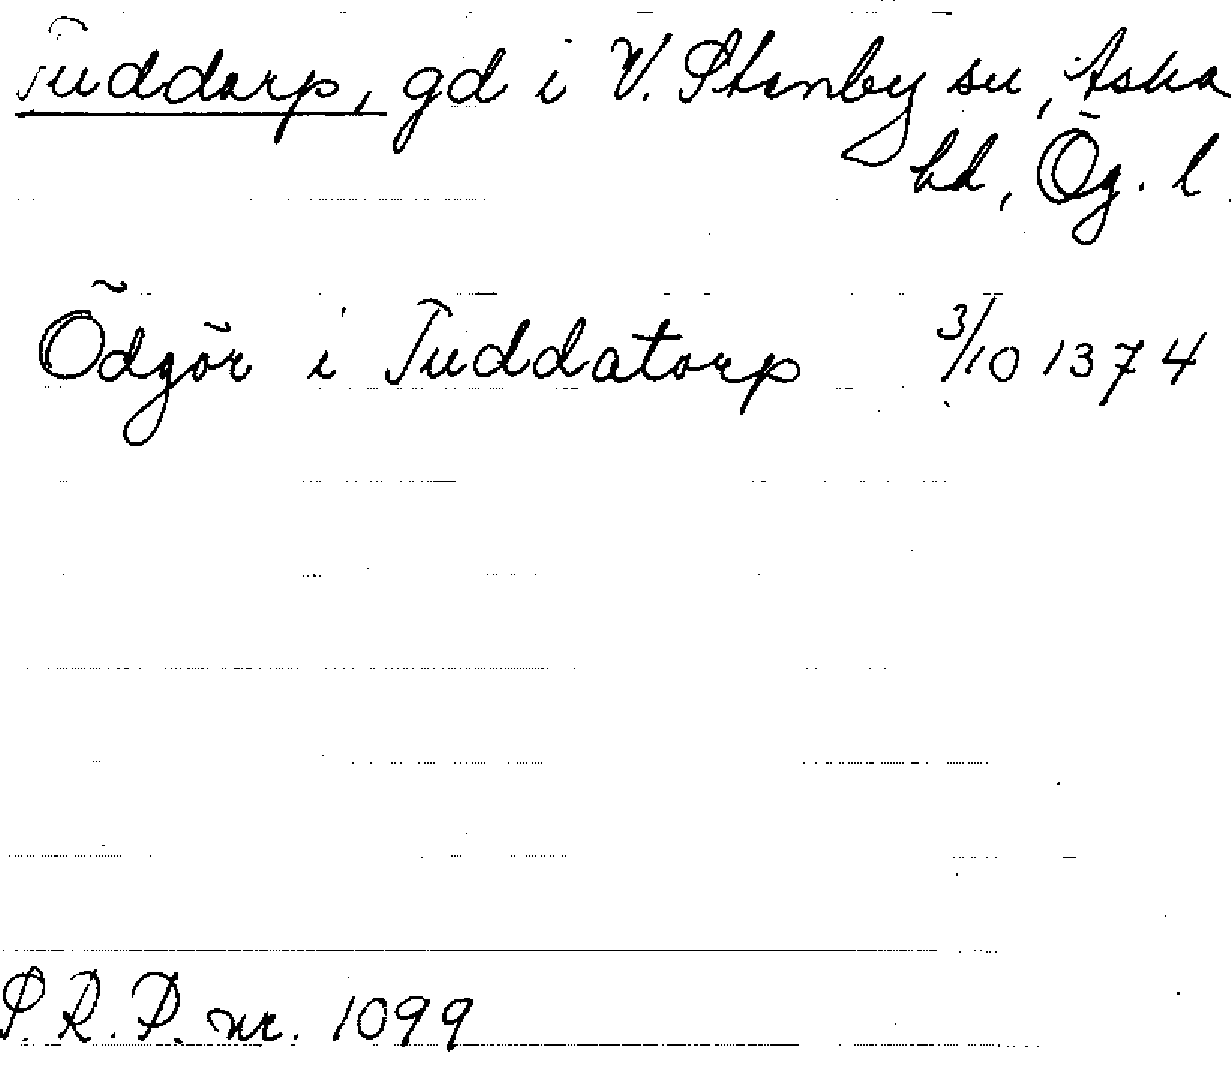 Tuddorp, gd i V. Stenby sn, Aska
hd, Ög. l.
Ödgör i Tuddatorp 3/10 1374
S.R.P. nr. 1099